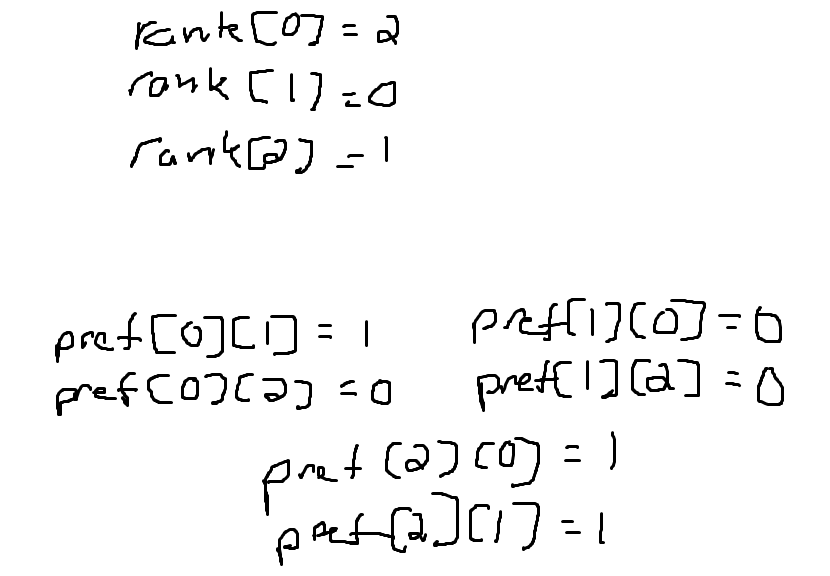 rank[0] = 2
rank[1] = 0
rank[2] = 1
pref[0][1] = 1
pref[1][0] = 0
pref[0][2] = 0
pref[1][2] = 0
pref[2][0] = 1
pref[2][1] = 1